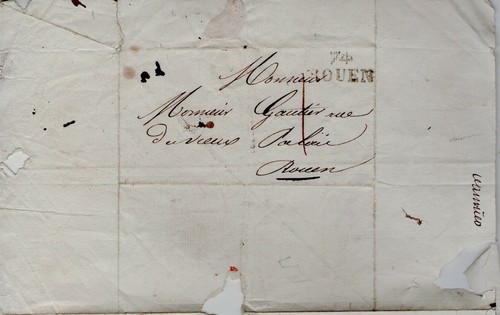 74
ROUEN
Monsieur
Monsieur Gautier rue
du vieux Palais
Rouen